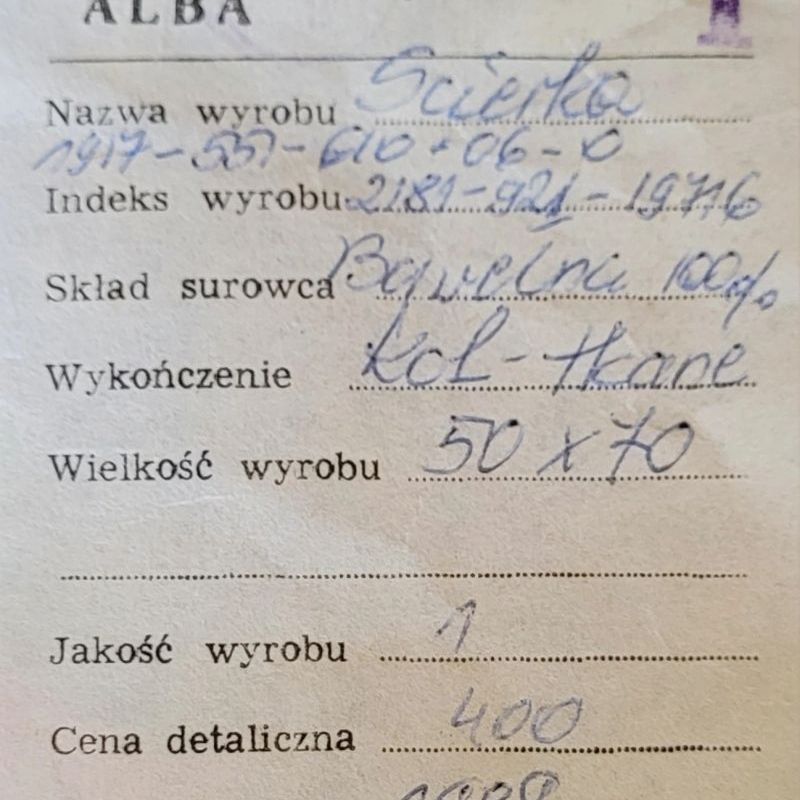 ALBA
Nazwa wyrobu Ścierka
Indeks wyrobu
Skład surowca Bawełna 100%
Wykończenie Kol-tkane
Wielkość wyrobu 50 x 70
Jakość wyrobu 1
Cena detaliczna 400